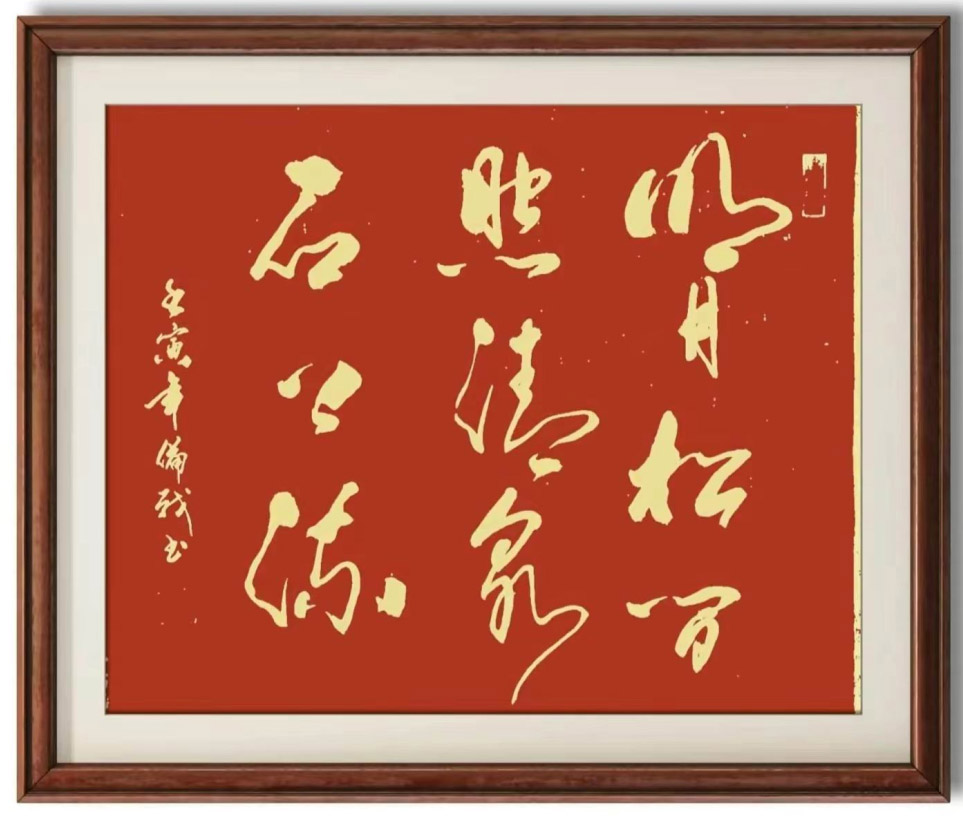 明月松间
照清泉
石上流
壬寅年備书